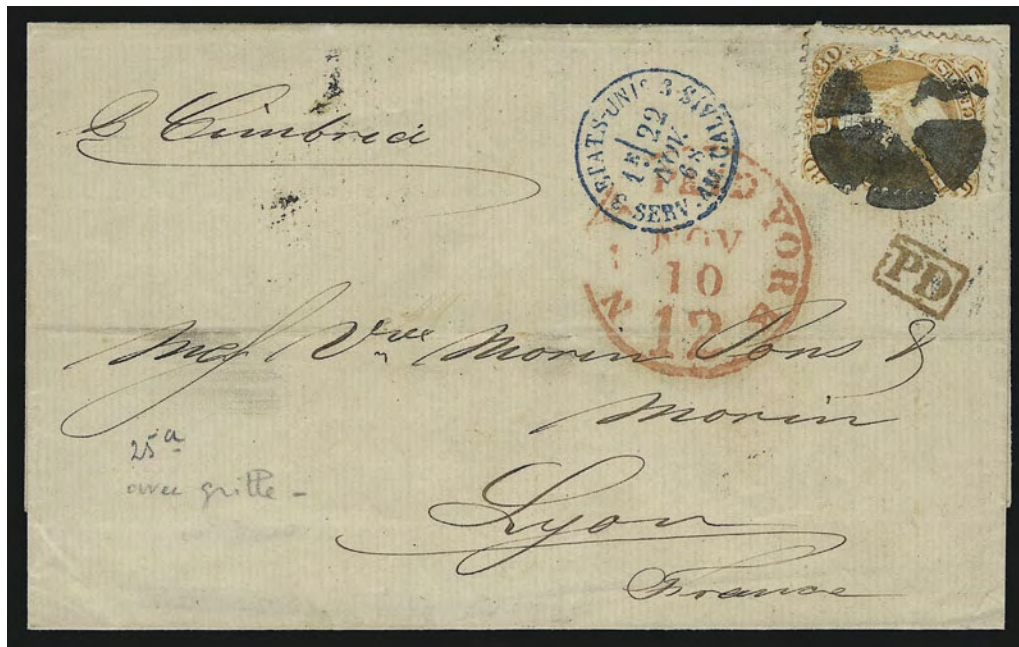 p Cimbria
3 ETATS-UNIS 3 SERV. AM. CALAIS
1E
22
NOV.
68
NEW YORK
PAID
NOV
10
12
30
PD
Mess Vve Morin Pons &
Morin
Lyon
France
25a
avec grille -